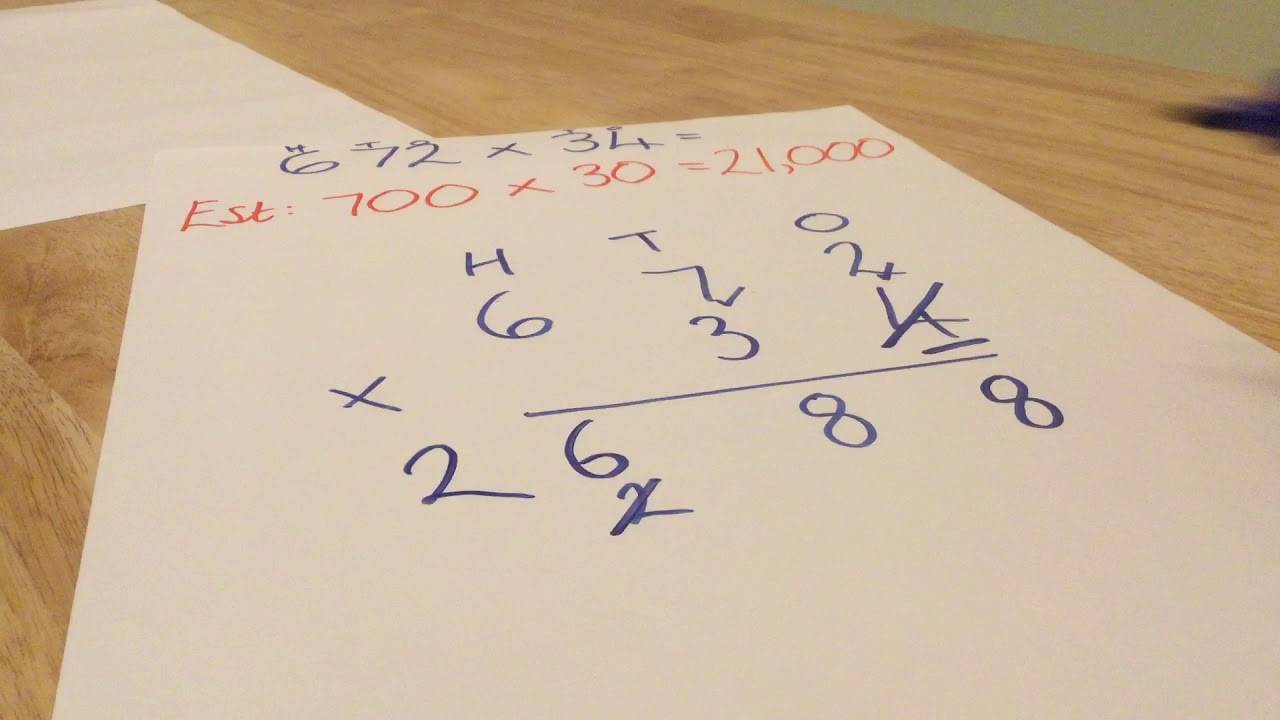 H T O T O
672 x 34 =
Est: 700 x 30 = 21,000
H T O
6 7 2
x 3 4
2 6 8 8
2